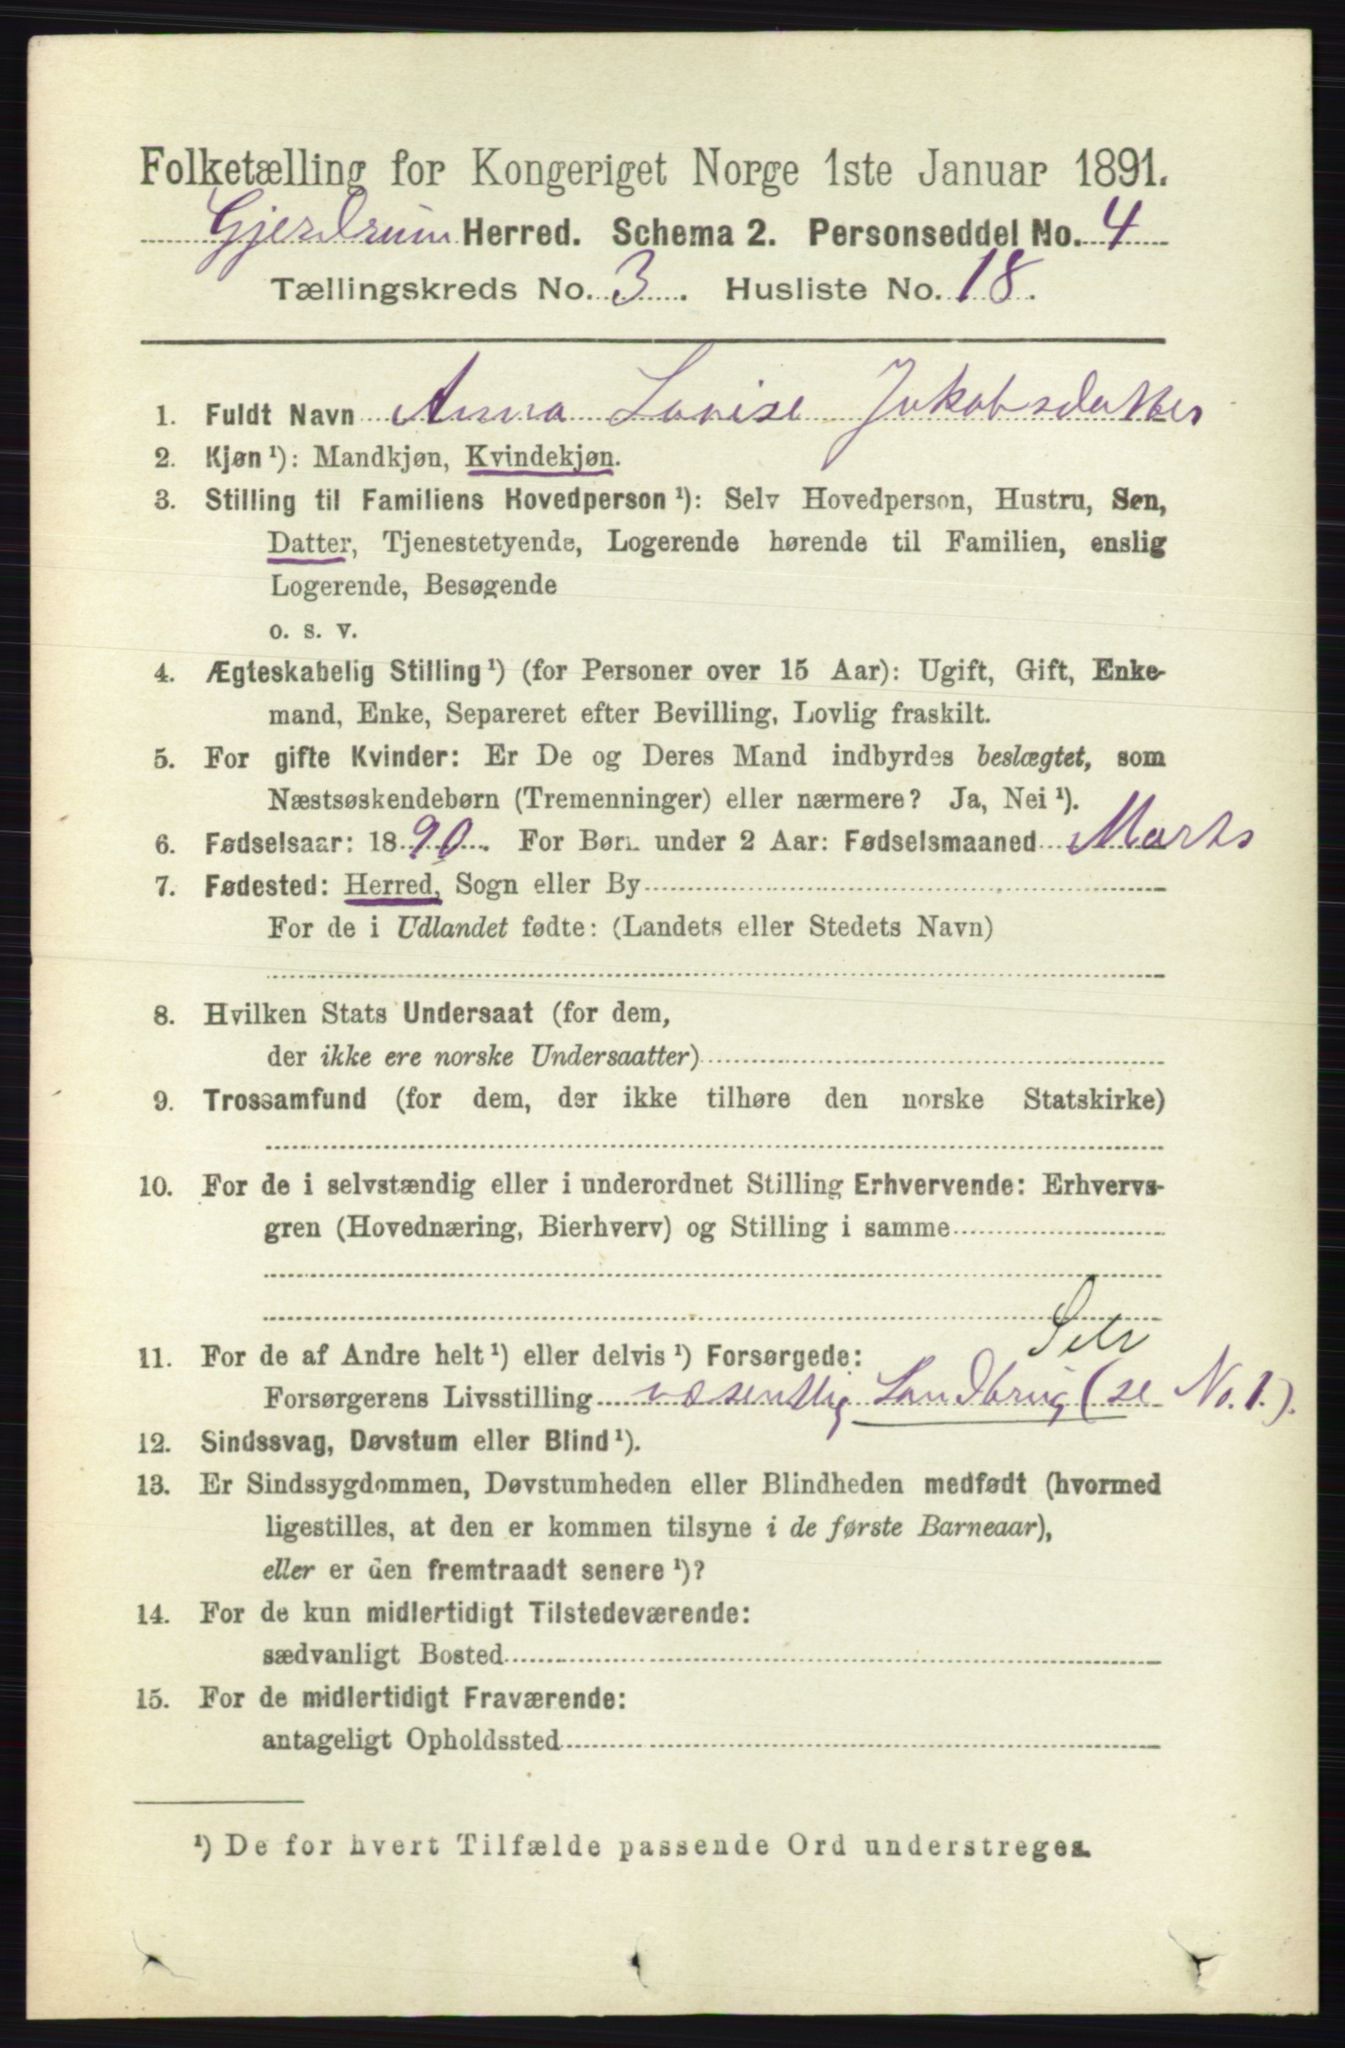 Folketælling for Kongeriget Norge 1ste Januar 1891.
Gjerdrum Herred. Schema 2. Personseddel No. 4
Tællingskreds No. 3. Husliste No. 18.
1. Fuldt Navn Anna Lovise Jakobsdatter
2. Kjøn¹): Mandkjøn, Kvindekjøn.
3. Stilling til Familiens Hovedperson¹): Selv Hovedperson, Hustru, Søn,
Datter, Tjenestetyende, Logerende hørende til Familien, enslig
Logerende, Besøgende
o. s. v.
4. Ægteskabelig Stilling¹) (for Personer over 15 Aar): Ugift, Gift, Enke-
mand, Enke, Separeret efter Bevilling, Lovlig fraskilt.
5. For gifte Kvinder: Er De og Deres Mand indbyrdes beslægtet, som
Næstsøskendebørn (Tremenninger) eller nærmere? Ja, Nei¹).
6. Fødselsaar: 1890. For Børn under 2 Aar: Fødselsmaaned Marts
7. Fødested: Herred, Sogn eller By
For de i Udlandet fødte: (Landets eller Stedets Navn)
8. Hvilken Stats Undersaat (for dem,
der ikke ere norske Undersaatter)
9. Trossamfund (for dem, der ikke tilhøre den norske Statskirke)
10. For de i selvstændig eller i underordnet Stilling Erhvervende: Erhvervs-
gren (Hovednæring, Bierhverv) og Stilling i samme
Selv
11. For de af Andre helt¹) eller delvis¹) Forsørgede:
Forsørgerens Livsstilling væsentlig Landbrug (se No. 1.).
12. Sindssvag, Døvstum eller Blind¹).
13. Er Sindssygdommen, Døvstumheden eller Blindheden medfødt (hvormed
ligestilles, at den er kommen tilsyne i de første Barneaar),
eller er den fremtraadt senere¹)?
14. For de kun midlertidigt Tilstedeværende:
sædvanligt Bosted
15. For de midlertidigt Fraværende:
antageligt Opholdssted
¹) De for hvert Tilfælde passende Ord understreges.